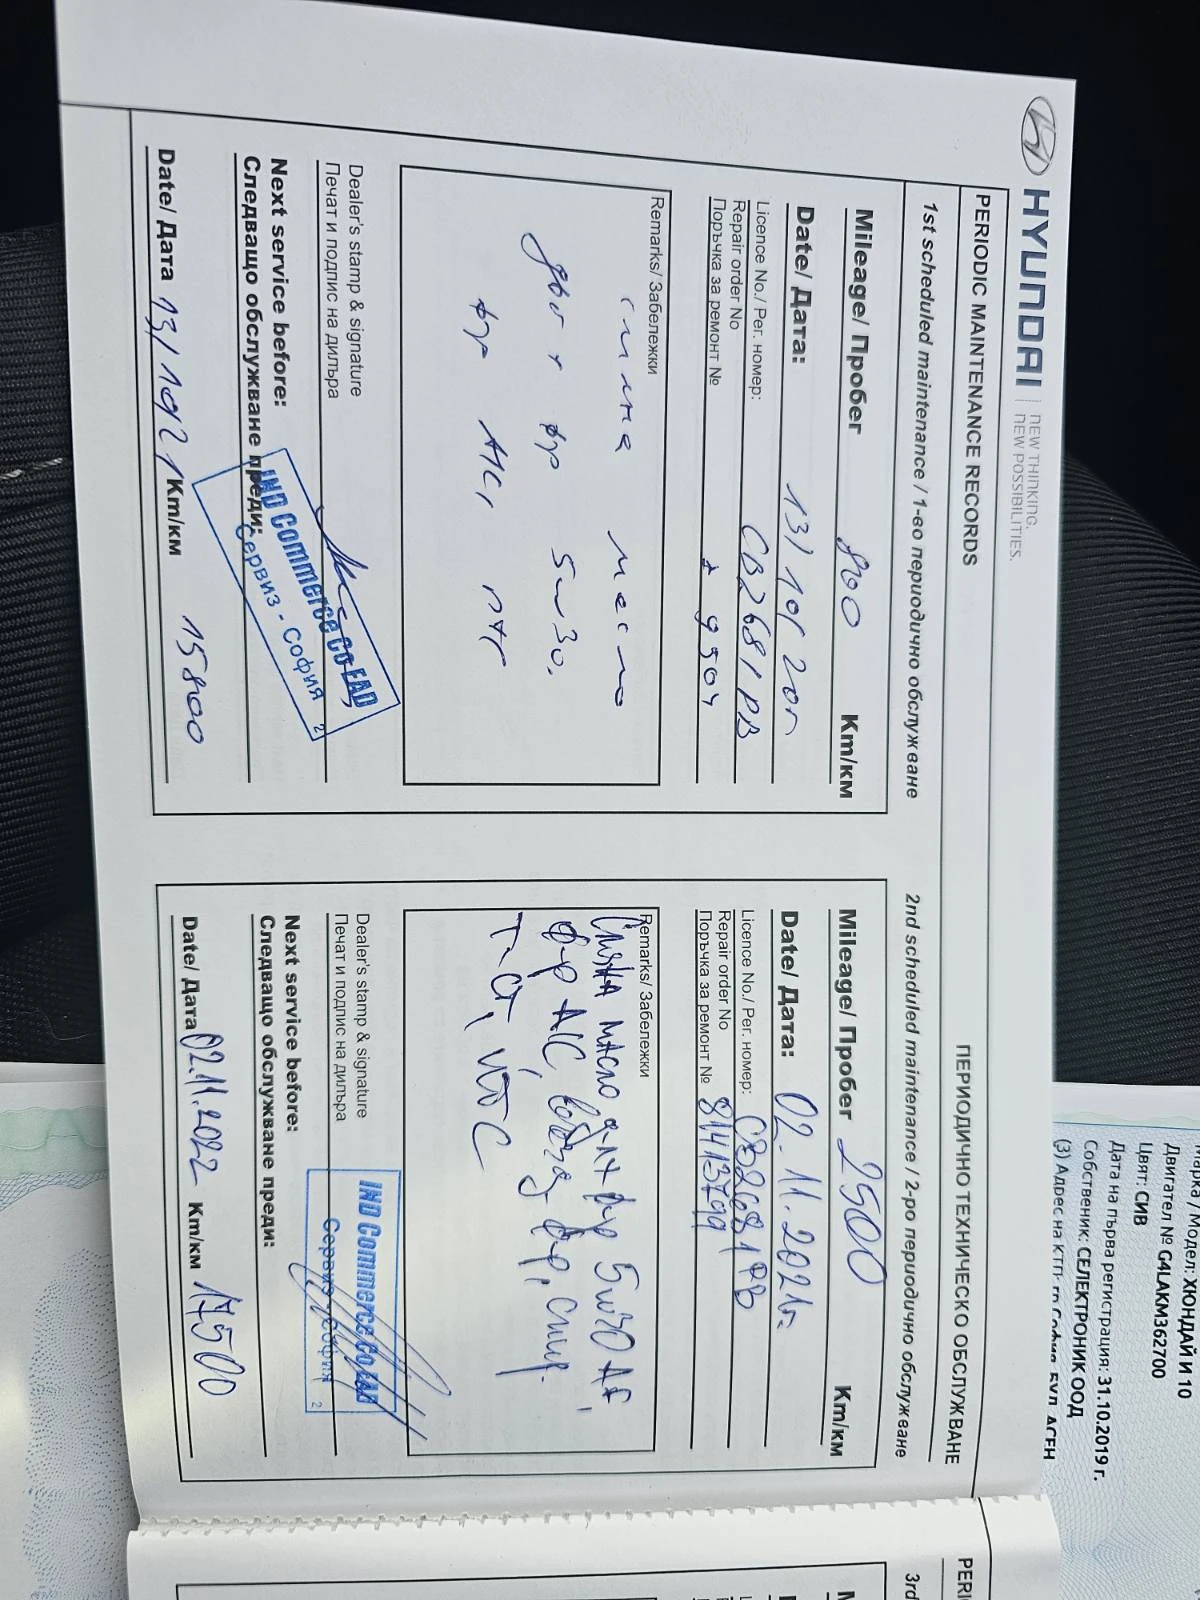 HYUNDAI
NEW THINKING.
NEW POSSIBILITIES.
PERIODIC MAINTENANCE RECORDS
ПЕРИОДИЧНО ТЕХНИЧЕСКО ОБСЛУЖВАНЕ
1st scheduled maintenance / 1-во периодично обслужване
Mileage/ Пробег 800 Km/км
Date/ Дата: 13/10г 20г
Licence No./ Рег. номер: СВ2681РВ
Repair order No
Поръчка за ремонт №
Remarks/ Забележки
смяна масло
двг + фр 5w30.
фр АС,
Dealer's stamp & signature
Печат и подпис на дилъра
IND Commerce Co EAD
Сервиз - София 2
Next service before:
Следващо обслужване преди:
Date/ Дата 13/10/21 Km/км 15800
2nd scheduled maintenance / 2-ро периодично обслужване
Mileage/ Пробег 2500 Km/км
Date/ Дата: 02.11.2021г.
Licence No./ Рег. номер: СВ2681РВ
Repair order No
Поръчка за ремонт № 81413799
Remarks/ Забележки
Смяна масло фр 5w30
фр АС, фр, спир.
Т-ст,
Dealer's stamp & signature
Печат и подпис на дилъра
IND Commerce Co EAD
Сервиз - София 2
Next service before:
Следващо обслужване преди:
Date/ Дата 02.11.2022 Km/км 17500
PERI
3rd
Марка / Модел: ХЮНДАЙ И 10
Двигател № G4LAKM362700
Цвят: СИВ
Дата на първа регистрация: 31.10.2019 г.
Собственик: СЕЛЕКТРОНИК ООД
(3) Адрес на КТП: гр.София, БУЛ. АСЕН